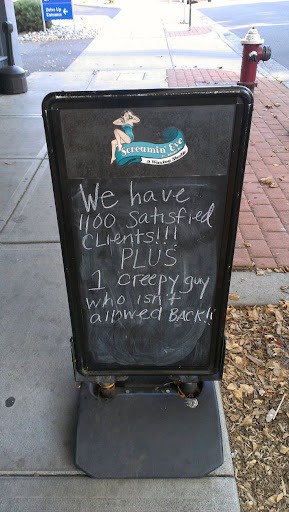 Drive Up
Entrance
Screamin' Eve
A Waxing Studio
We have
1100 Satisfied
Clients!!!
PLUS
1 creepy guy
who isn't
allowed BACK!!